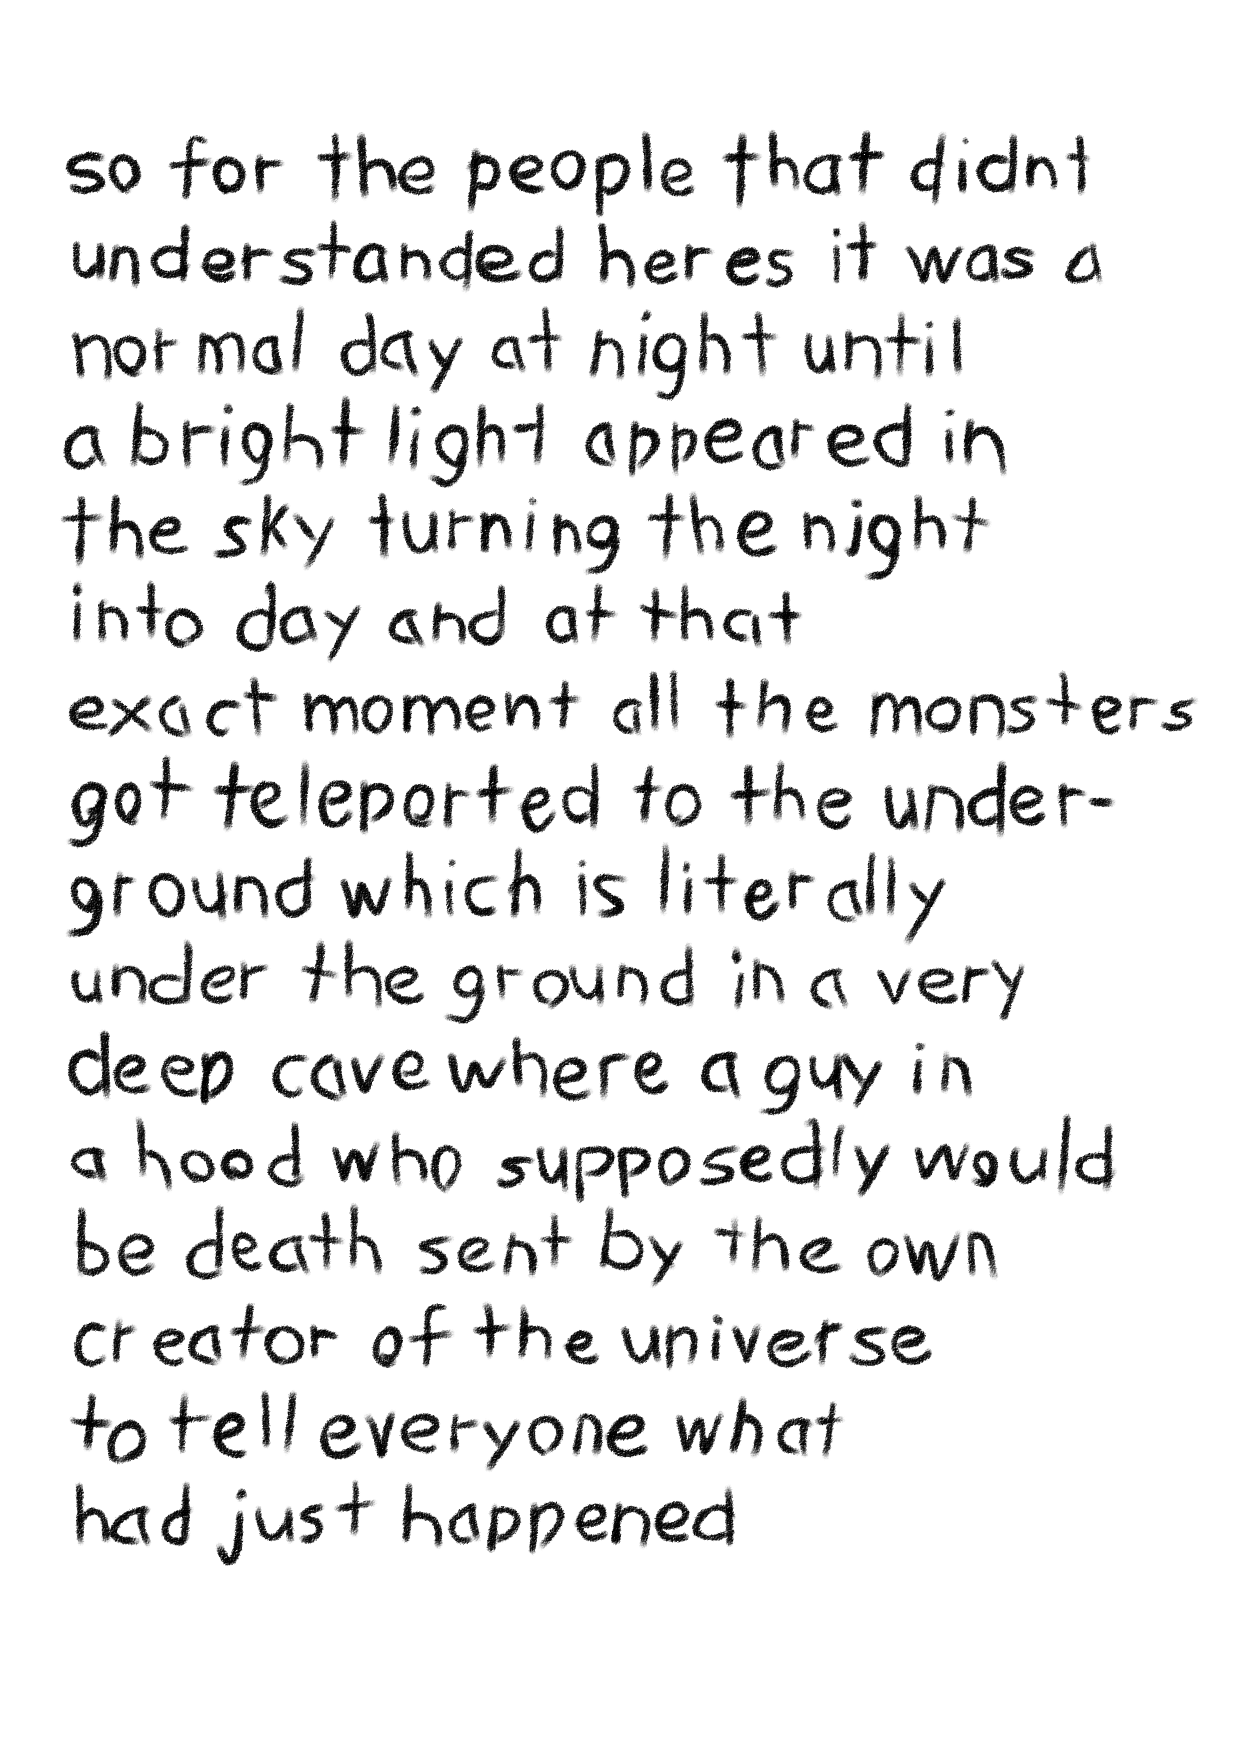 so for the people that didnt
understanded heres it was a
normal day at night until
a bright light appeared in
the sky turning the night
into day and at that
exact moment all the monsters
got teleported to the under-
ground which is literally
under the ground in a very
deep cave where a guy in
a hood who supposedly would
be death sent by the own
creator of the universe
to tell everyone what
had just happened